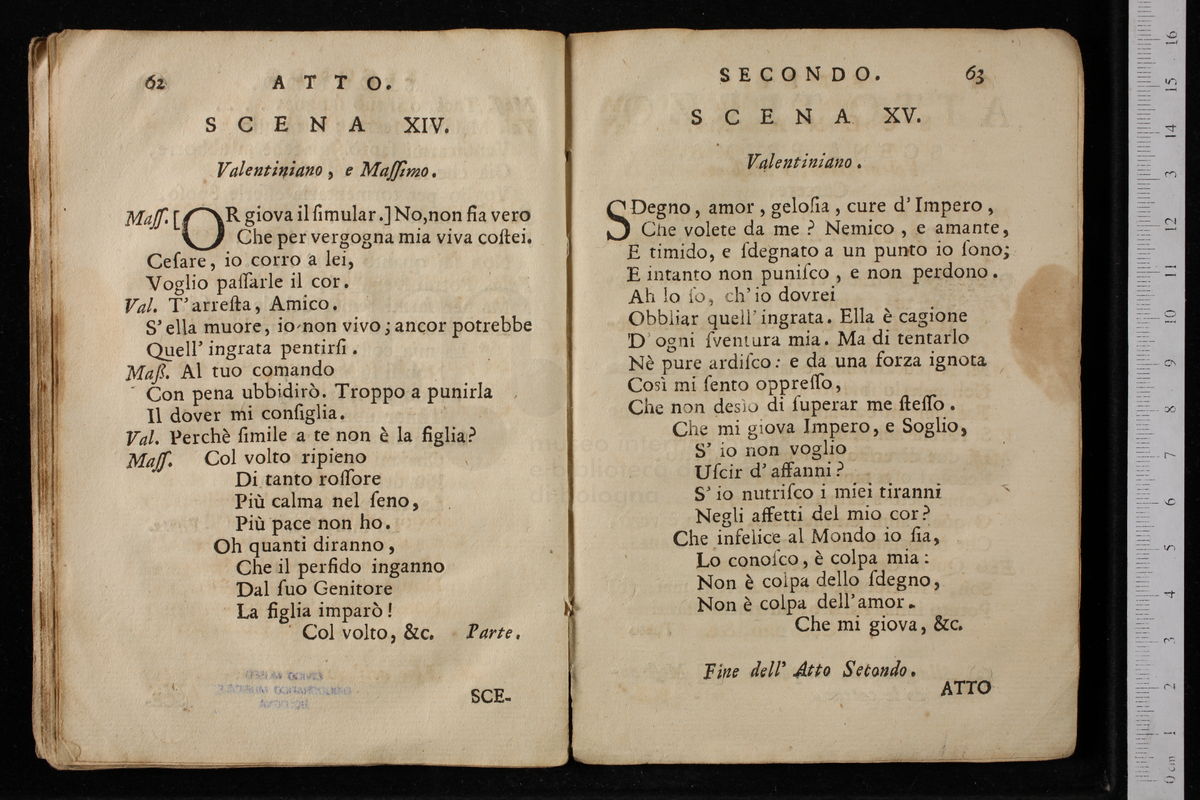 62 ATTO.
SCENA XIV.
Valentiniano, e Maſſimo.
Maſſ. [OR giova il ſimular.] No, non fia vero
Che per vergogna mia viva coſtei.
Ceſare, io corro a lei,
Voglio paſſarle il cor.
Val. T'arreſta, Amico.
S'ella muore, io non vivo; ancor potrebbe
Quell' ingrata pentirſi.
Maß. Al tuo comando
Con pena ubbidirò. Troppo a punirla
Il dover mi conſiglia.
Val. Perchè ſimile a te non è la figlia?
Maſſ. Col volto ripieno
Di tanto roſſore
Più calma nel ſeno,
Più pace non ho.
Oh quanti diranno,
Che il perfido inganno
Dal ſuo Genitore
La figlia imparò!
Col volto, &c. Parte.
SCE-
SECONDO. 63
SCENA XV.
Valentiniano.
SDegno, amor, geloſia, cure d'Impero,
Che volete da me? Nemico, e amante,
E timido, e ſdegnato a un punto io ſono;
E intanto non puniſco, e non perdono.
Ah lo ſo, ch'io dovrei
Obbliar quell'ingrata. Ella è cagione
D'ogni ſventura mia. Ma di tentarlo
Nè pure ardiſco: e da una forza ignota
Così mi ſento oppreſſo,
Che non desìo di ſuperar me ſteſſo.
Che mi giova Impero, e Soglio,
S' io non voglio
Uſcir d'affanni?
S'io nutriſco i miei tiranni
Negli affetti del mio cor?
Che infelice al Mondo io ſia,
Lo conoſco, è colpa mia:
Non è colpa dello ſdegno,
Non è colpa dell'amor.
Che mi giova, &c.
Fine dell' Atto Secondo.
ATTO